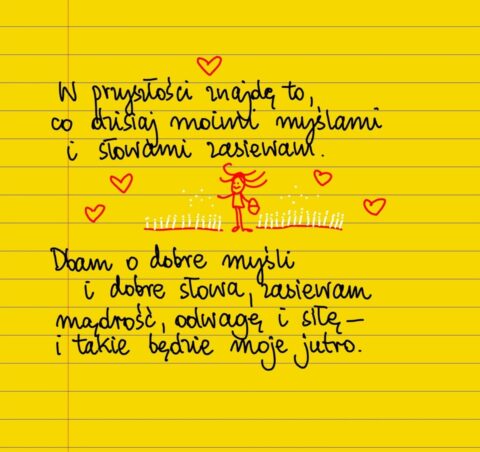 W przyszłości znajdę to,
co dzisiaj moimi myślami
i słowami zasiewam.
Dbam o dobre myśli
i dobre słowa, zasiewam
mądrość, odwagę i siłę –
i takie będzie moje jutro.